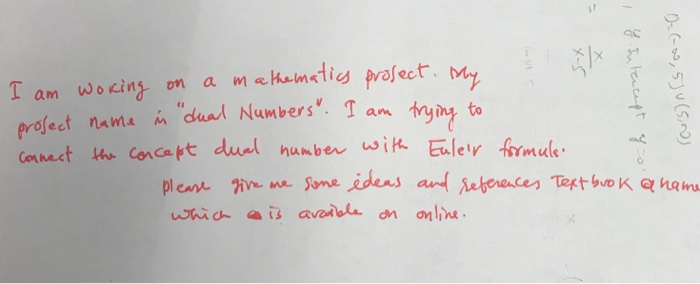 I am woking on a mathematics project. My
project name is "dual Numbers". I am trying to
connect the concept dual number with Euleir formula.
please give me some ideas and references Textbook name
which is avaible on online.
D=(-∞, 5) ∪ (5, ∞)
y Intercept y=0
x
x-5
=